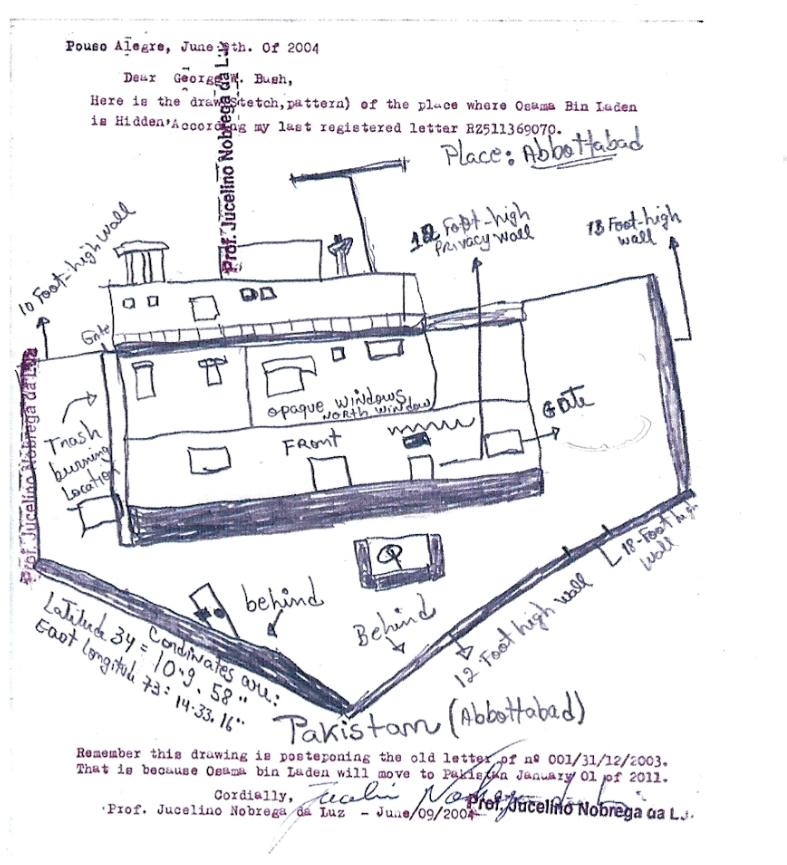 Pouso Alegre, June 9th. Of 2004
Dear George W. Bush,
Here is the draw(Stetch,pattern) of the place where Osama Bin Laden
is Hidden'According my last registered letter RZ511369070.
Place: Abbottabad
Prof. Jucelino Nobrega da L.J.
10 Foot-high wall
12 Foot-high
Privacy wall
18 Foot-high
wall
Gate
Trash
burning
Location
opaque windows
NORTH WINDOW
FRONT
GATE
Prof. Jucelino Nobrega da Luz
behind
Behind
18-Foot high
wall
12 Foot high wall
Cordinates are:
Latitude 34 = 10.9. 58"
East Longitud 73: 14.33.16"
Pakistam (Abbottabad)
Remember this drawing is posteponing the old letter of nº 001/31/12/2003.
That is because Osama bin Laden will move to Pakistan January 01 of 2011.
Cordially,
Prof. Jucelino Nobrega da Luz - June/09/2004
Prof. Jucelino Nobrega da L.J.